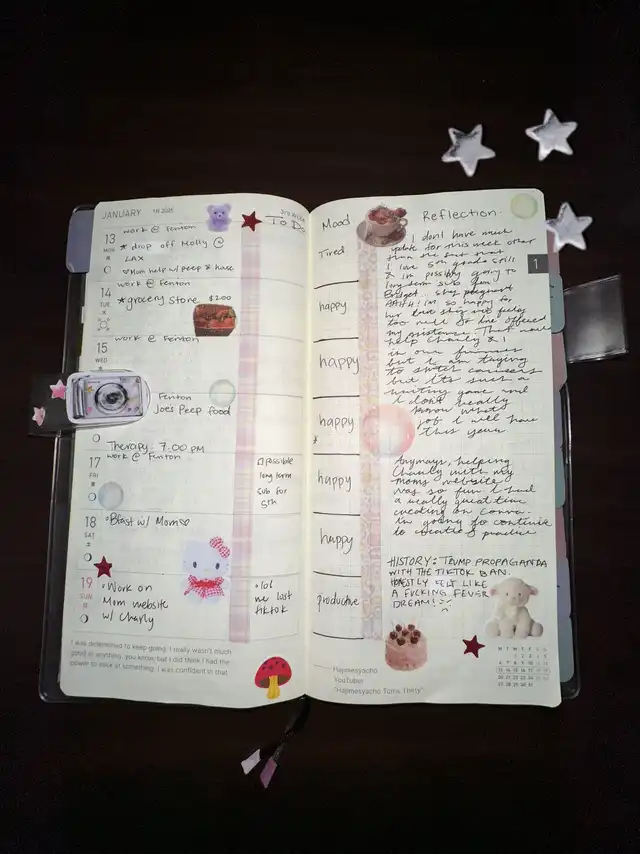 JANUARY
1月 2025
To Do
13
MON
work @ Fenton
★ drop off Molly @
LAX
♡Mom help w/ peep & hase
14
TUE
work @ Fenton
★grocery store $200
15
WED
work @ Fenton
Fenton
Joes Peep food
Therapy 7:00 PM
17
FRI
work @ Fenton
□ possible
long term
sub for
5th
18
SAT
Bfast w/ Mom♡
19
SUN
Work on
Mom website
w/ Charly
lol
we lost
tiktok
I was determined to keep going. I really wasn't much
good in anything, you know, but I did think I had the
power to excel at something. I was confident in that.
Mood
Tired
happy
happy
happy
happy
happy
productive
Reflection.
1
I don't have much
update for this week other
than the fact that
I love 5th grade still
& im possibly going to
long term sub for
Bridget. shes pregnant
AAHH! im so happy for
her
help Charly & I
in our
but I am trying
to switch careers
but its such a
waiting game and
I dont really
know what
job I will have
this year
Anyways, helping
Charly with my
moms website
was so fun I had
a really great time
creating on Canva.
im going to continue
to create & practice
HISTORY: TRUMP PROPAGANDA
WITH THE TIKTOK BAN.
HONESTLY FELT LIKE
A FUCKING FEVER
DREAM!
Hajimesyacho
YouTuber
"Hajimesyacho Turns Thirty"
M T W T F S S
1 2 3 4 5
6 7 8 9 10 11 12
13 14 15 16 17 18 19
20 21 22 23 24 25 26
27 28 29 30 31